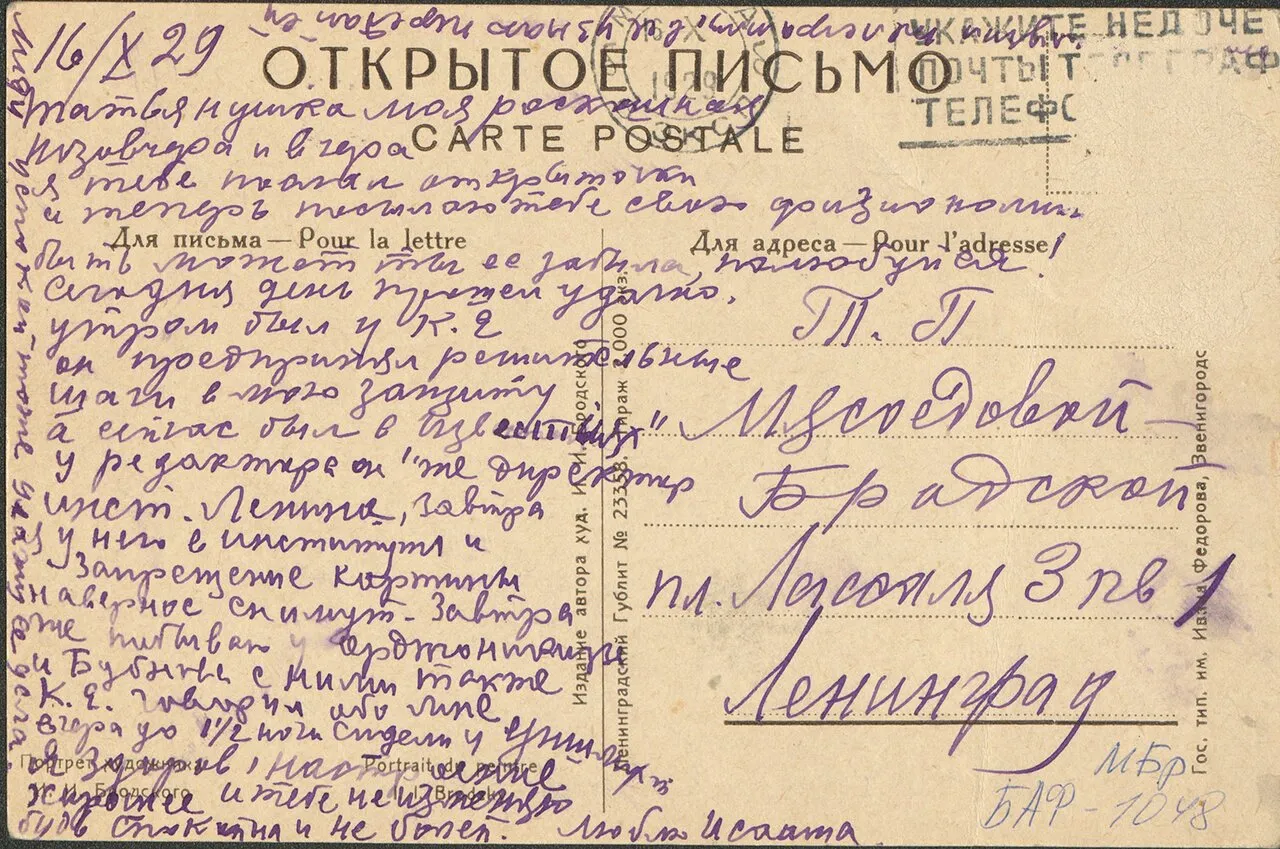 16/X 29
УКАЖИТЕ НЕДОЧЕ
ПОЧТЫ Т ЛЕГРАФ
ТЕЛЕФ
ОТКРЫТОЕ ПИСЬМО
CARTE POSTALE
16 X
1929
Татьянушка моя роскошная
позавчера и вчера
я тебе послал открыточки
и теперь посылаю тебе свою физиономию
Для письма — Pour la lettre
быть может ты ее забыла, полюбуйся!
Сегодня день прошел удачно.
утром был у К. Е
он предпринял решительные
шаги в мою защиту
а сейчас был в Известиях"
у редактора он же директор
инст. Ленина, завтра
у него в институте и
запрещение картины
наверное снимут. Завтра
же побываю у Орджоникидзе
и Бубнова с ними также
К. Е. говорил обо мне
вчера до 1½ ночи сидели у
Я здоров, настроение
хорошее и тебе не изменяю
будь спокойна и не болей. люблю Исаака
Портрет художника Portrait du peintre
И. И. Бродского I. I. Brodsky
Издание автора худ. И. И. Бродского
Ленинградский Гублит № 23358. Тираж 2.000 экз.
Для адреса — Pour l'adresse
Т. П
Мясоедовой —
Бродской
пл. Лассаля 3 кв 1
Ленинград
Гос. тип. им. Ивана Федорова, Звенигородс
МБр
БАФ - 1048